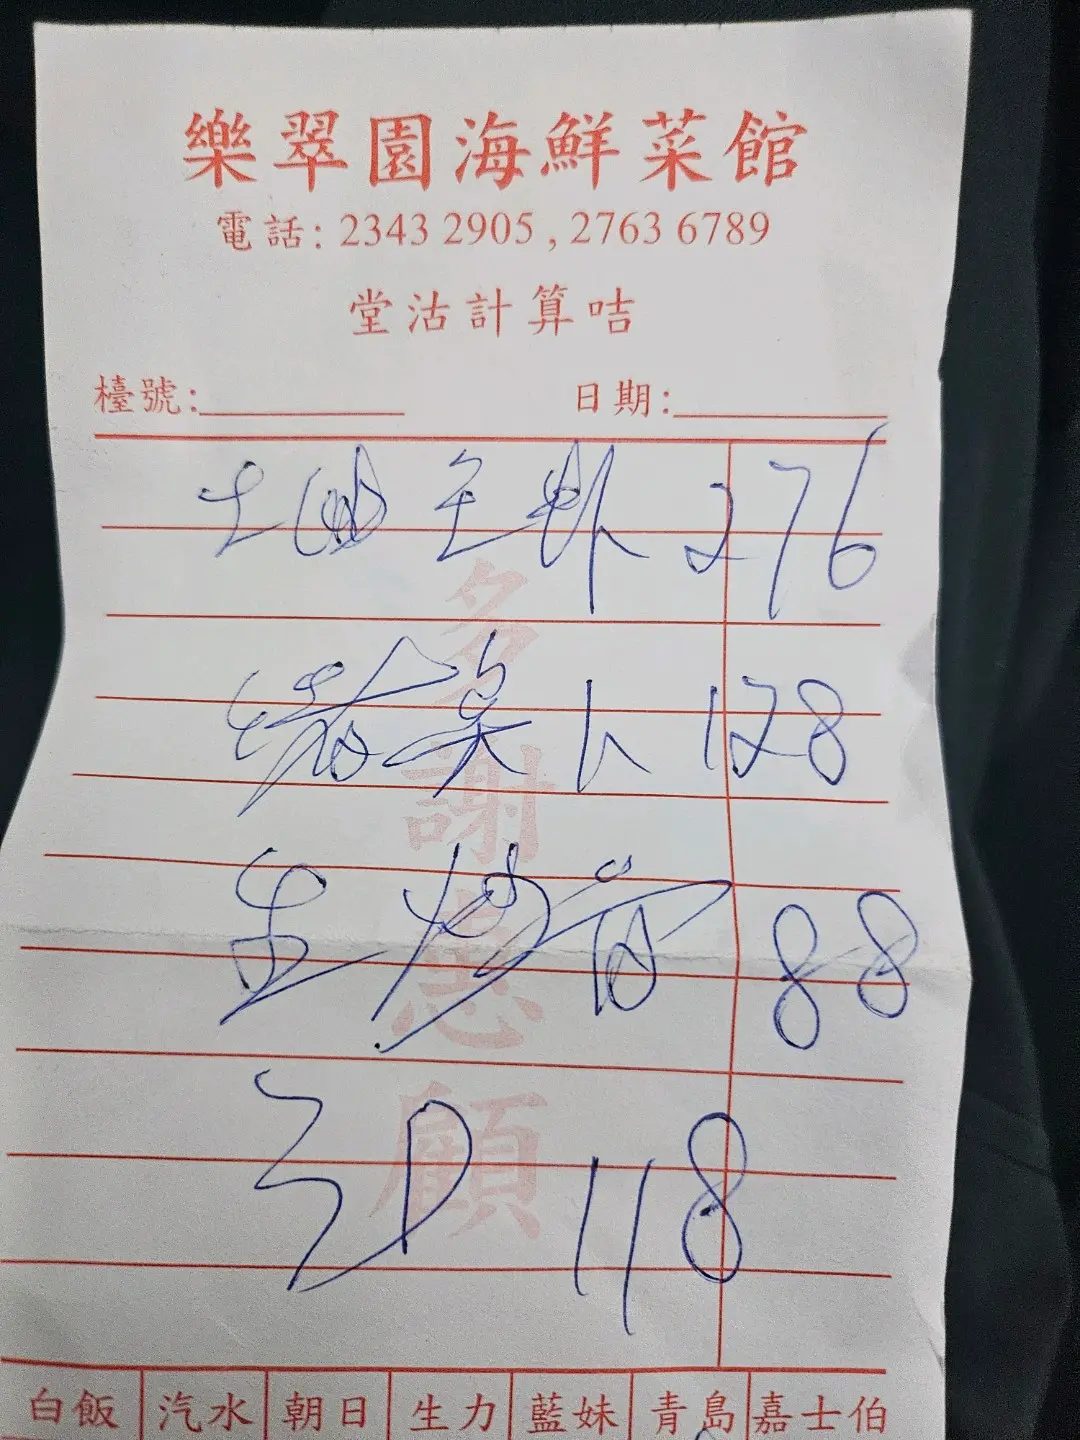 樂翠園海鮮菜館
電話: 2343 2905 , 2763 6789
堂沽計算咭
檯號: 日期:
276
128
生炒骨 88
118
多謝惠顧
白飯 汽水 朝日 生力 藍妹 青島 嘉士伯